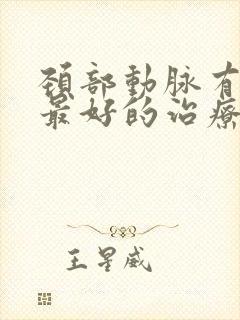 頚部動脉有
最好的治療
王星威